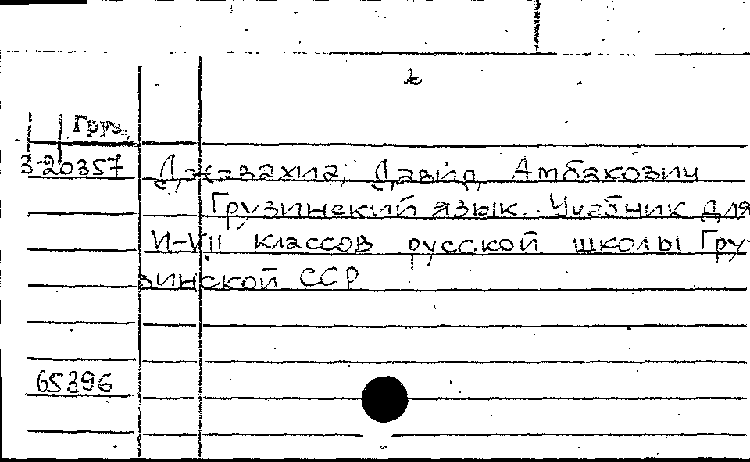 Груз.
3-20357 Джавахиа, Давид Амбакович
Грузинский язык. Учебник для
VI-VII классов русской школы Гру-
зинской ССР
65396